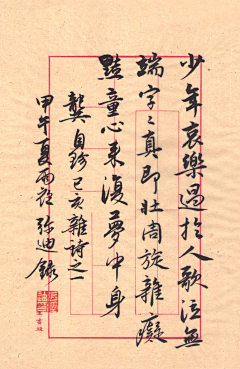 少年哀樂過於人歌泣無
端字〻真既壯周旋雜癡
黠童心来復夢中身
龔自珍己亥雜詩之一
甲午夏雨 弥迪錄